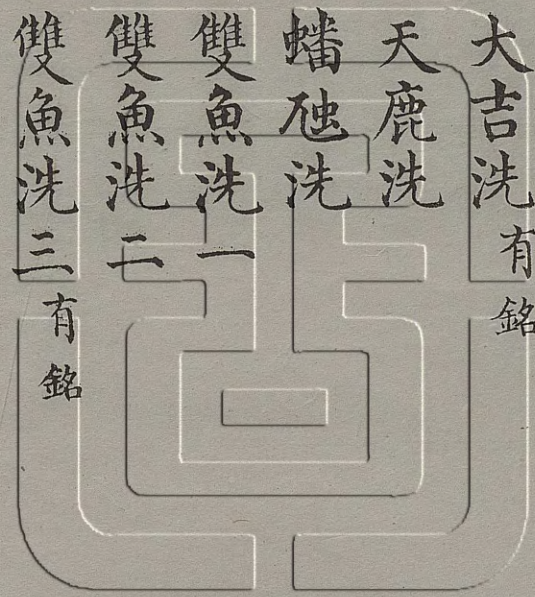 大吉洗有銘
天鹿洗
蟠虺洗
雙魚洗一
雙魚洗二
雙魚洗三有銘